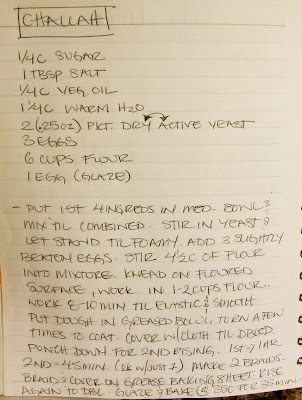 CHALLAH
1/4 C SUGAR
1 TBSP SALT
1/4 C VEG OIL
1 1/4 C WARM H2O
2 (.25oz) PKT. DRY ACTIVE YEAST
3 EGGS
6 CUPS FLOUR
1 EGG (GLAZE)
- PUT 1ST 4 INGREDS IN MED. BOWL &
MIX 'TIL COMBINED. STIR IN YEAST &
LET STAND TIL FOAMY. ADD 3 SLIGHTLY
BEATEN EGGS. STIR 4 1/2 C OF FLOUR
INTO MIXTURE. KNEAD ON FLOURED
SURFACE, WORK IN 1-2 CUPS FLOUR.
WORK 8-10 MIN TIL ELASTIC & SMOOTH.
PUT DOUGH IN GREASED BOWL, TURN A FEW
TIMES TO COAT. COVER W/CLOTH TIL DBLED
PUNCH DOWN FOR 2ND RISING. 1ST-1 HR
2ND-45 MIN. (OR W/JUST 1) MAKE 2 BRAIDS.
BRAID & COVER ON GREASE BAKING SHEET. RISE
AGAIN TO DBL. GLAZE & BAKE @ 350 FOR 35 MIN